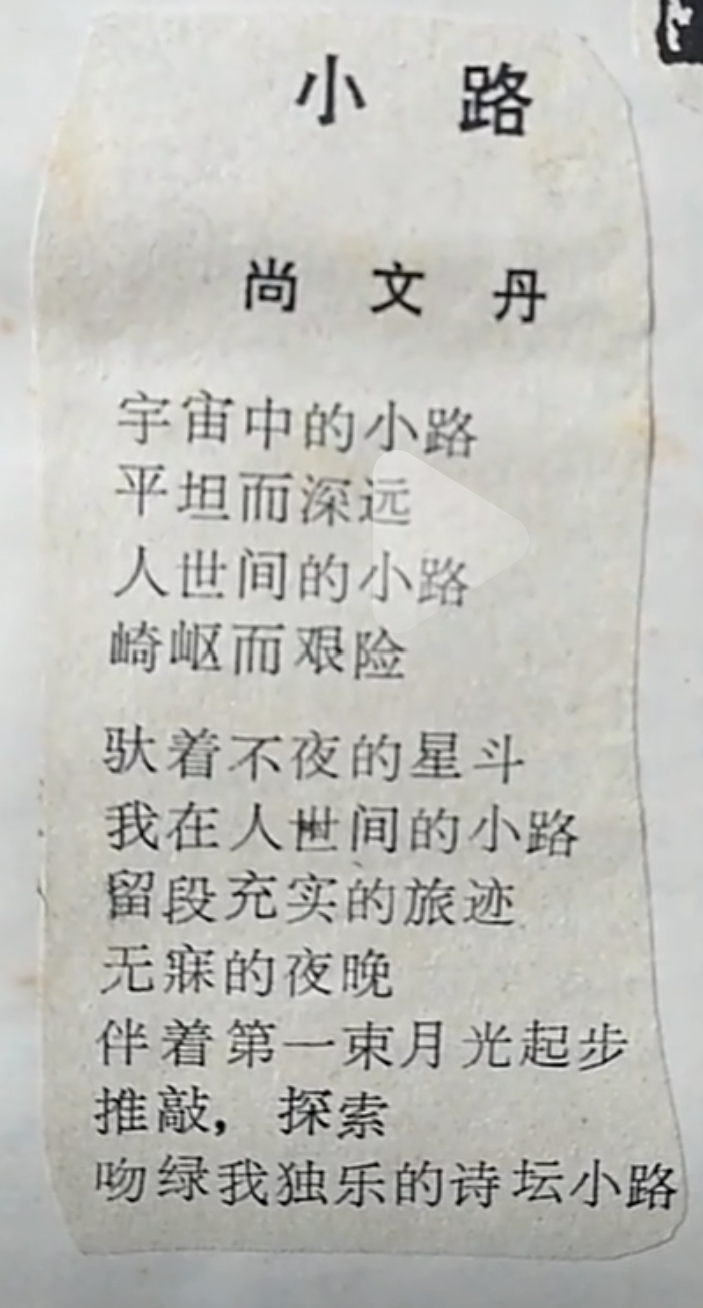 小路
尚文丹
宇宙中的小路
平坦而深远
人世间的小路
崎岖而艰险
驮着不夜的星斗
我在人世间的小路
留段充实的旅迹
无寐的夜晚
伴着第一束月光起步
推敲，探索
吻绿我独乐的诗坛小路